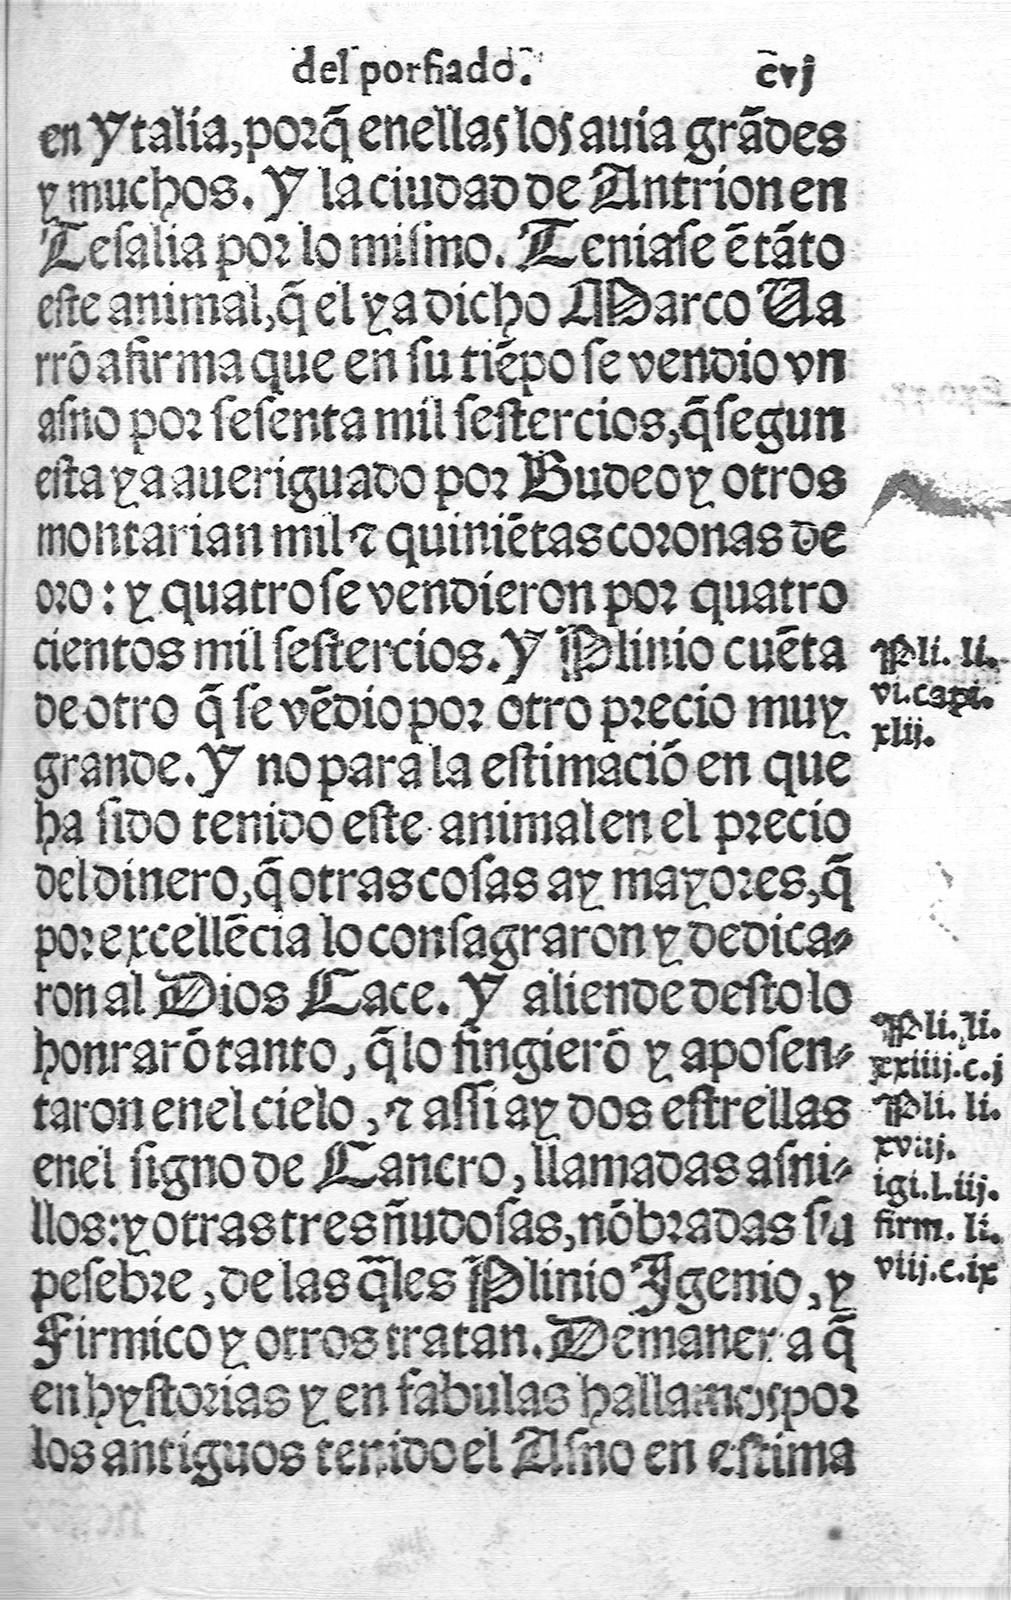 del porfiado.
c̄vj
en Ytalia, porq̃ enellas los auia grãdes
y muchos. Y la ciudad de Antrion en
Tesalia por lo mismo. Teniase ẽ tãto
este animal, q̃ el ya dicho Marco Ua
rrõ afirma que en su tiẽpo se vendio vn
asno por sesenta mil sestercios, q̃ segun
esta ya aueriguado por Budeo y otros
montarian mil ⁊ quiniẽtas coronas de
oro: y quatro se vendieron por quatro
cientos mil sestercios. Y Plinio cuẽta
de otro q̃ se vẽdio por otro precio muy
grande. Y no para la estimaciõ en que
ha sido tenido este animal en el precio
del dinero, q̃ otras cosas ay mayores, q̃
por excellẽcia lo consagraron y dedica-
ron al Dios Cace. Y aliende desto lo
honrarõ tanto, q̃ lo fingierõ y aposen-
taron enel cielo, ⁊ assi ay dos estrellas
enel signo de Cancro, llamadas asni-
llos: y otras tres ñudosas, nõbradas su
pesebre, de las q̃les Plinio Igenio, y
Firmico y otros tratan. De manera q̃
en hystorias y en fabulas hallamos por
los antiguos tenido el Asno en estima
Pli. li.
vi. capi.
xlij.
Pli. li.
xxiiij. c. j
Pli. li.
xviij.
igi. l. iij.
firm. li.
viij. c. ix